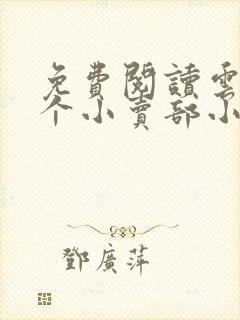 免費閱讀雲
个小賣部小
鄧廣萍